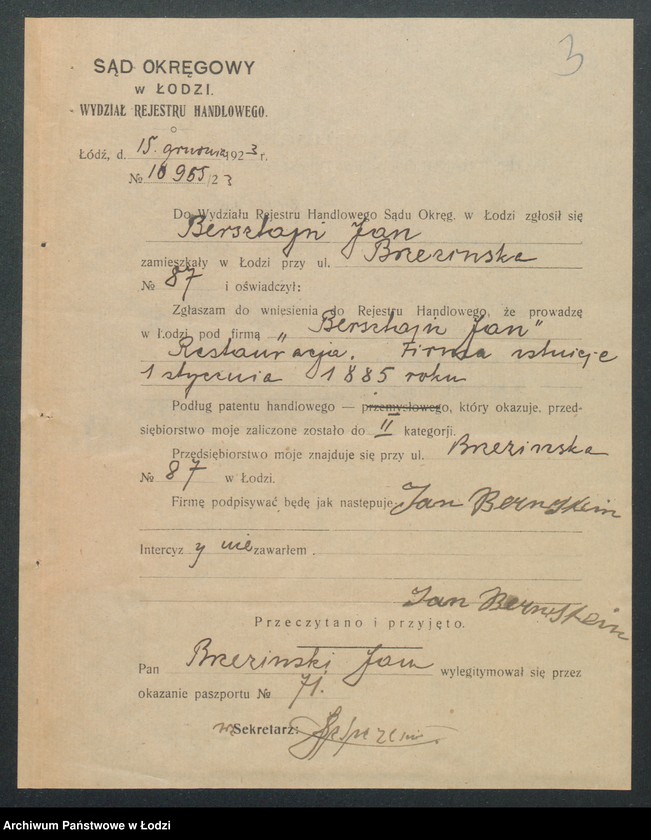 3
SĄD OKRĘGOWY
w ŁODZI.
WYDZIAŁ REJESTRU HANDLOWEGO.
Łódź, d. 15. grudnia 1923 r.
№ 10965/23
Do Wydziału Rejestru Handlowego Sądu Okręg. w Łodzi zgłosił się
Bersztajn Jan
zamieszkały w Łodzi przy ul. Brzezinska
№ 87 i oświadczył:
Zgłaszam do wniesienia do Rejestru Handlowego, że prowadzę
w Łodzi pod firmą „Bersztajn Jan”
Restauracja. Firma istnieje
1 stycznia 1885 roku
Podług patentu handlowego — przemysłowego, który okazuje, przed-
siębiorstwo moje zaliczone zostało do II kategorji.
Przedsiębiorstwo moje znajduje się przy ul. Brzezinska
№ 87 w Łodzi.
Firmę podpisywać będę jak następuje Jan Bernstein
Intercyzy nie zawarłem.
Jan Bernstein
Przeczytano i przyjęto.
Pan Brzezinski Jan wylegitymował się przez
okazanie paszportu № 71.
Sekretarz:
Archiwum Państwowe w Łodzi